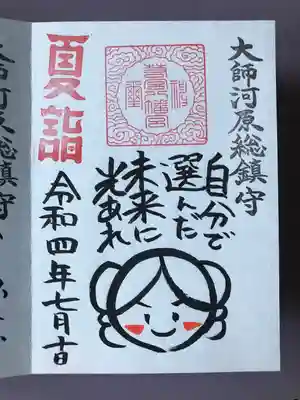 大師河原総鎮守
自分で
選んだ
未来に
光あれ
夏詣
令和四年七月十日
大師河原総鎮守